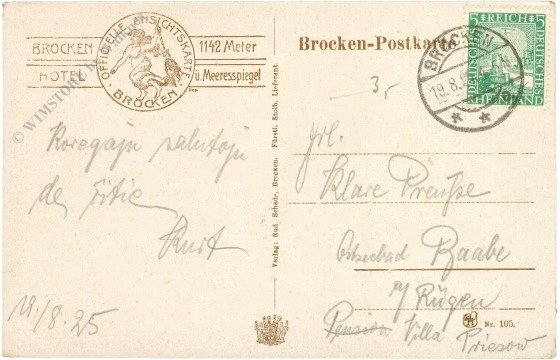 BROCKEN HOTEL
OFFIZIELLE ANSICHTSKARTE
BROCKEN
1142 Meter
ü. Meeresspiegel
Brocken-Postkarte
5 REICH 5
DEUTSCHES
DEUTSCHES
RHEINLAND
BROCKEN
19.8.
3,-
Koregajn salutojn
de
Kurt
19./8.25
Verlag: Rud. Schade, Brocken. Fürstl. Stolb. Lieferant.
Frl.
Klare Preuße
Ostseebad Baabe
a/ Rügen
Pension Villa
Priesow
Nr. 105.
© WIMSTORY